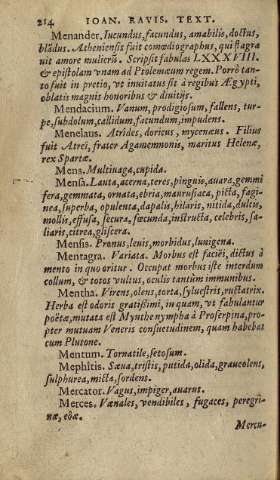 214 IOAN. RAVIS. TEXT.
Menander, Iucundus, facundus, amabilis, doctus,
blãdus. Atheniensis fuit comœdiographus, qui flagra
uit amore mulierũ. Scripsit fabulas LXXXVIII.
& epistolam vnam ad Ptolemæum regem. Porrò tan-
to fuit in pretio, vt inuitatus sit à regibus Ægypti,
oblatis magnis honoribus & diuitijs.
Mendacium. Vanum, prodigiosum, fallens, tur-
pe, subdolum, callidum, facundum, impudens.
Menelaus. Atrides, doricus, mycenæus. Filius
fuit Atrei, frater Agamemnonis, maritus Helenæ,
rex Spartæ.
Mens. Multinaga, cupida.
Mensa. Lauta, acerna, teres, pinguis, auara, gemmi
fera, gemmata, ornata, ebria, mansueta, picta, fagi-
nea, superba, opulenta, dapalis, hilaris, nitida, dulcis,
mollis, effusa, secura, fœcunda, instructa, celebris, sa-
liaris, citrea, gliscera.
Mensis. Pronus, lenis, morbidus, lunigena.
Mentagra. Variata. Morbus est faciei, dictus à
mento in quo oritur. Occupat morbus iste interdum
collum, & totos vultus, oculis tantùm immunibus.
Mentha. Virens, olens, torta, syluestris, ructatrix.
Herba est odoris gratissimi, in quam, vt fabulantur
poëtæ, mutata est Mynthe nympha à Proserpina, pro-
pter mutuam Veneris consuetudinem, quam habebat
cum Plutone.
Mentum. Tornatile, setosum.
Mephitis. Sæua, tristis, putida, olida, graueolens,
sulphurea, mista, sordens.
Mercator. Vagus, impiger, auarus.
Merces. Vænales, vendibiles, fugaces, peregri-
næ, eoæ.
Mercu-